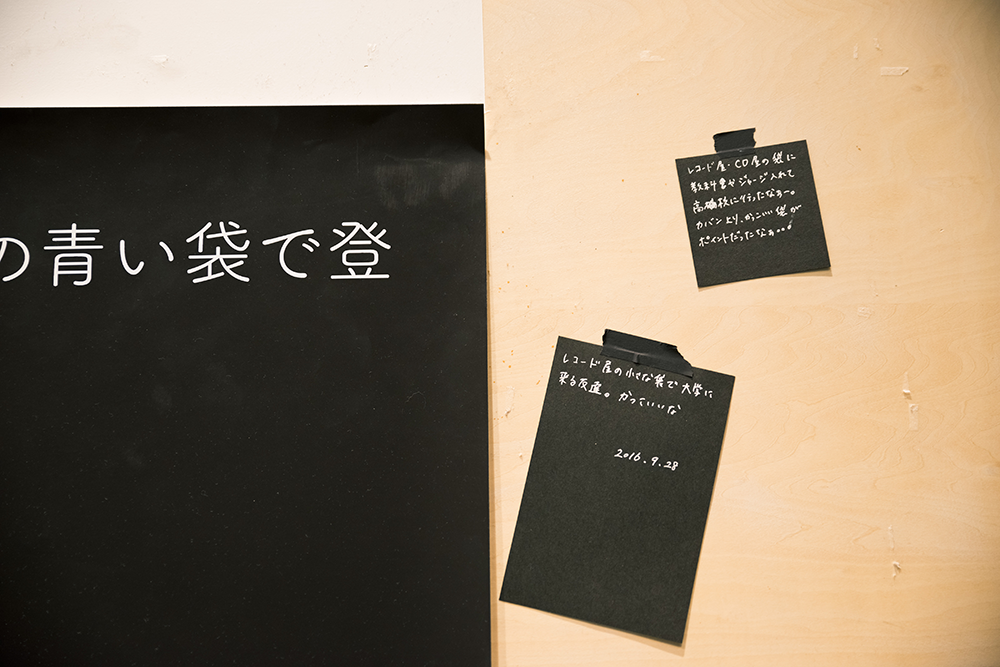 の青い袋で登
レコード屋・CD屋の袋に
教科書やジャージ入れて
高編校に行ったなぁー。
カバンより、かっこいい袋が
ポイントだったなぁ。。。
レコード屋の小さな袋で大学に
来る友達。かっていいな
2016.9.28